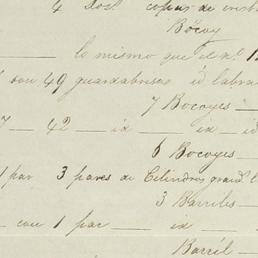 4 Dos.s copas de crist
Bocoy
lo mismo que el n.º 1
con 49 guardabrisas id labra
7 Bocoyes
7 — 42 — ix — ix — id
6 Bocoyes
1 par 3 pares de Cilindros grand.s
3 Barriles
con 1 par — ix — ix
Barril